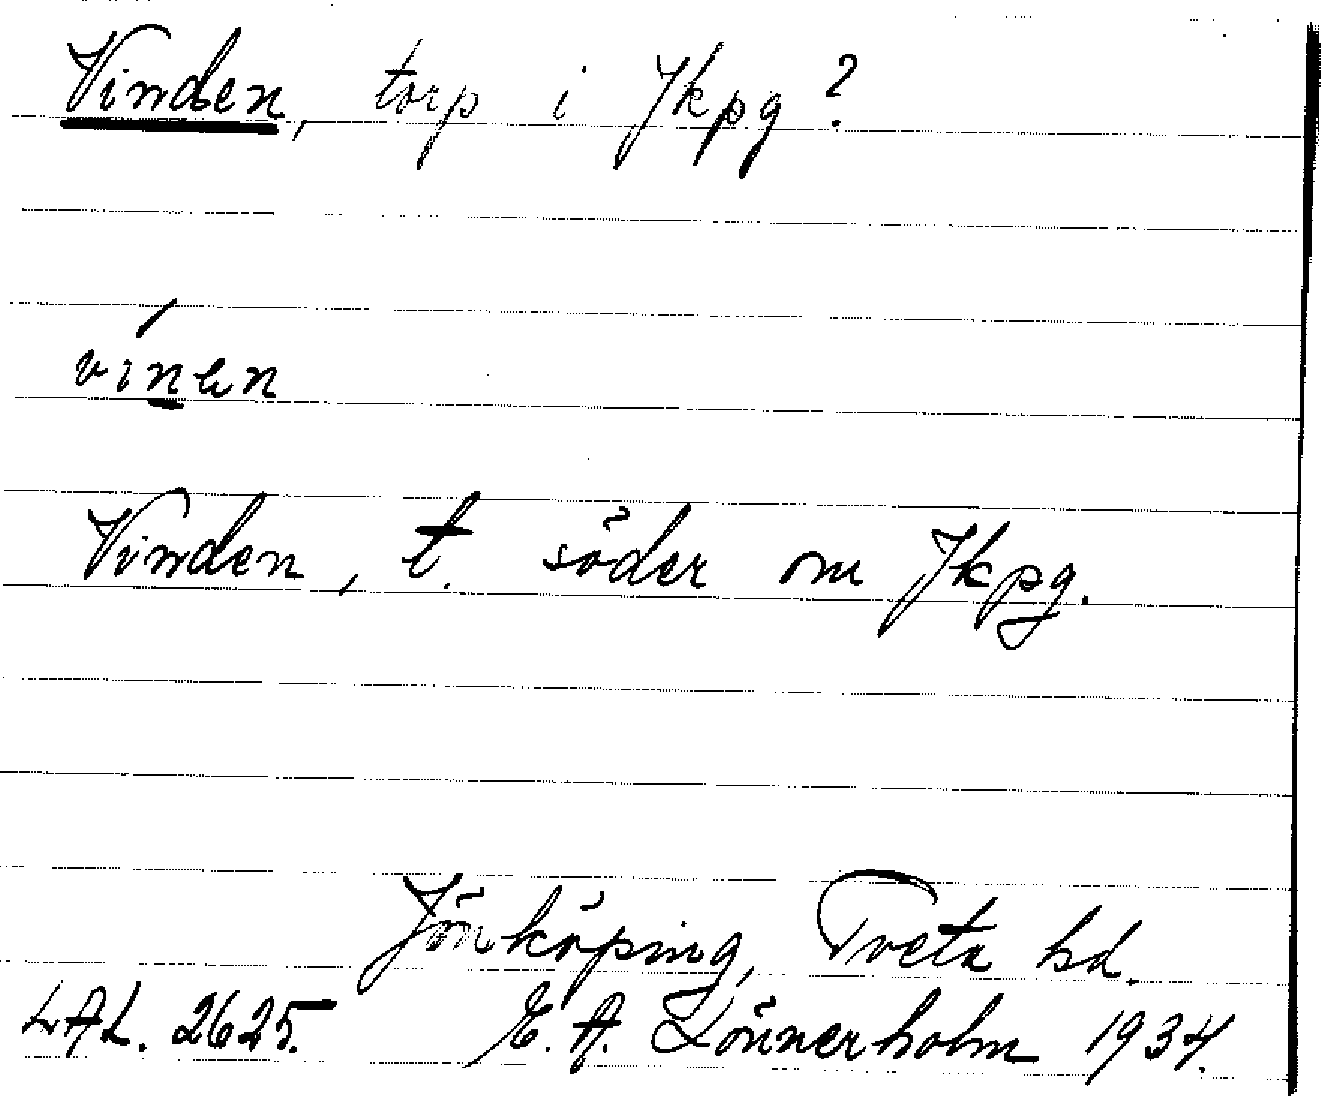 Vinden, torp i Jkpg?
vinen
Vinden, t. söder om Jkpg.
Jönköping, Tveta hd.
LAL. 2625. E. A. Lönnerholm 1934.